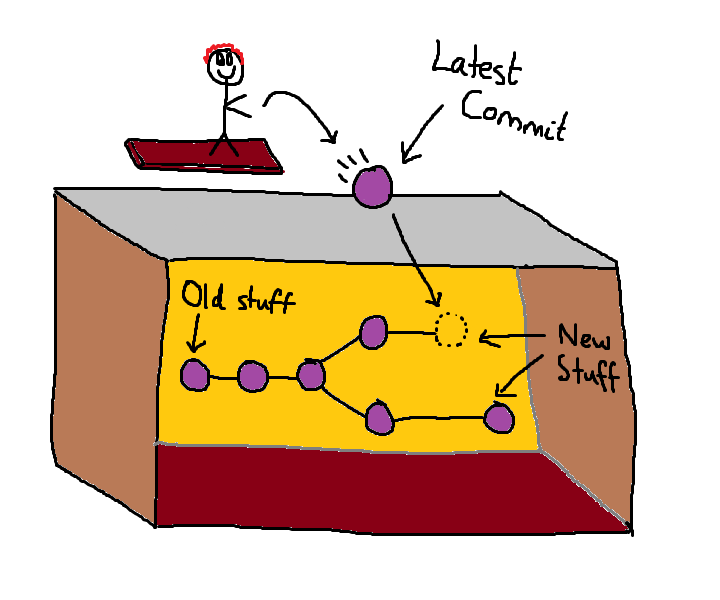 Latest
Commit
Old stuff
New
Stuff